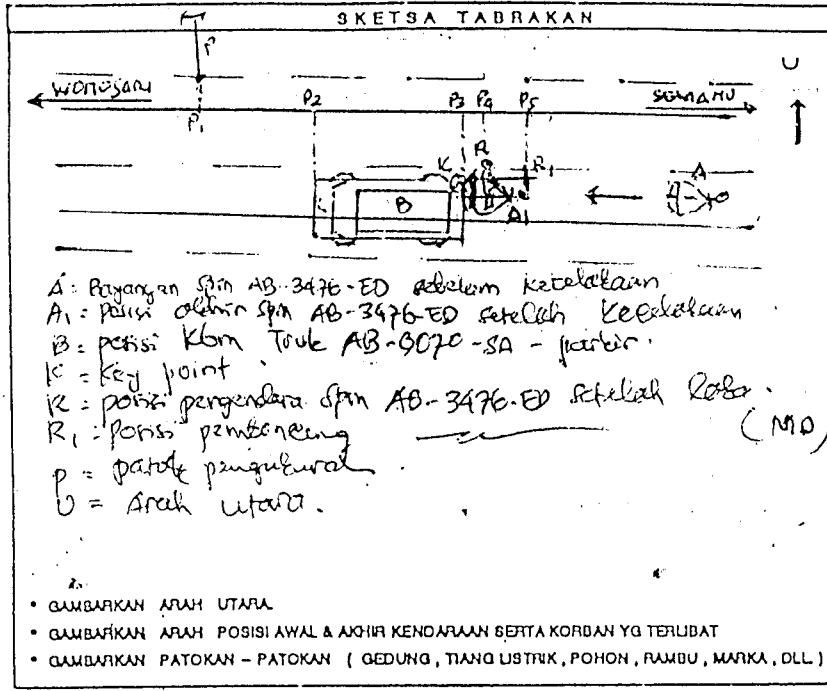 SKETSA TABRAKAN
P
U
WONOSARI
SEMANU
P1
P2
P3 P4 P5
K R R1
A
B
A1
A: Bayangan Spin AB-3476-ED sebelum kecelakaan
A1 = posisi akhir Spin AB-3476-ED setelah kecelakaan
B = posisi Kbm Truk AB-8070-SA - parkir.
K = Key point
R = posisi pengendara Spin AB-3476-ED setelah laka.
R1 : posisi pembonceng (MD)
P = patok pengukuran.
U = Arah utara.
• GAMBARKAN ARAH UTARA
• GAMBARKAN ARAH POSISI AWAL & AKHIR KENDARAAN SERTA KORBAN YG TERLIBAT
• GAMBARKAN PATOKAN - PATOKAN ( GEDUNG, TIANG LISTRIK, POHON, RAMBU, MARKA, DLL )